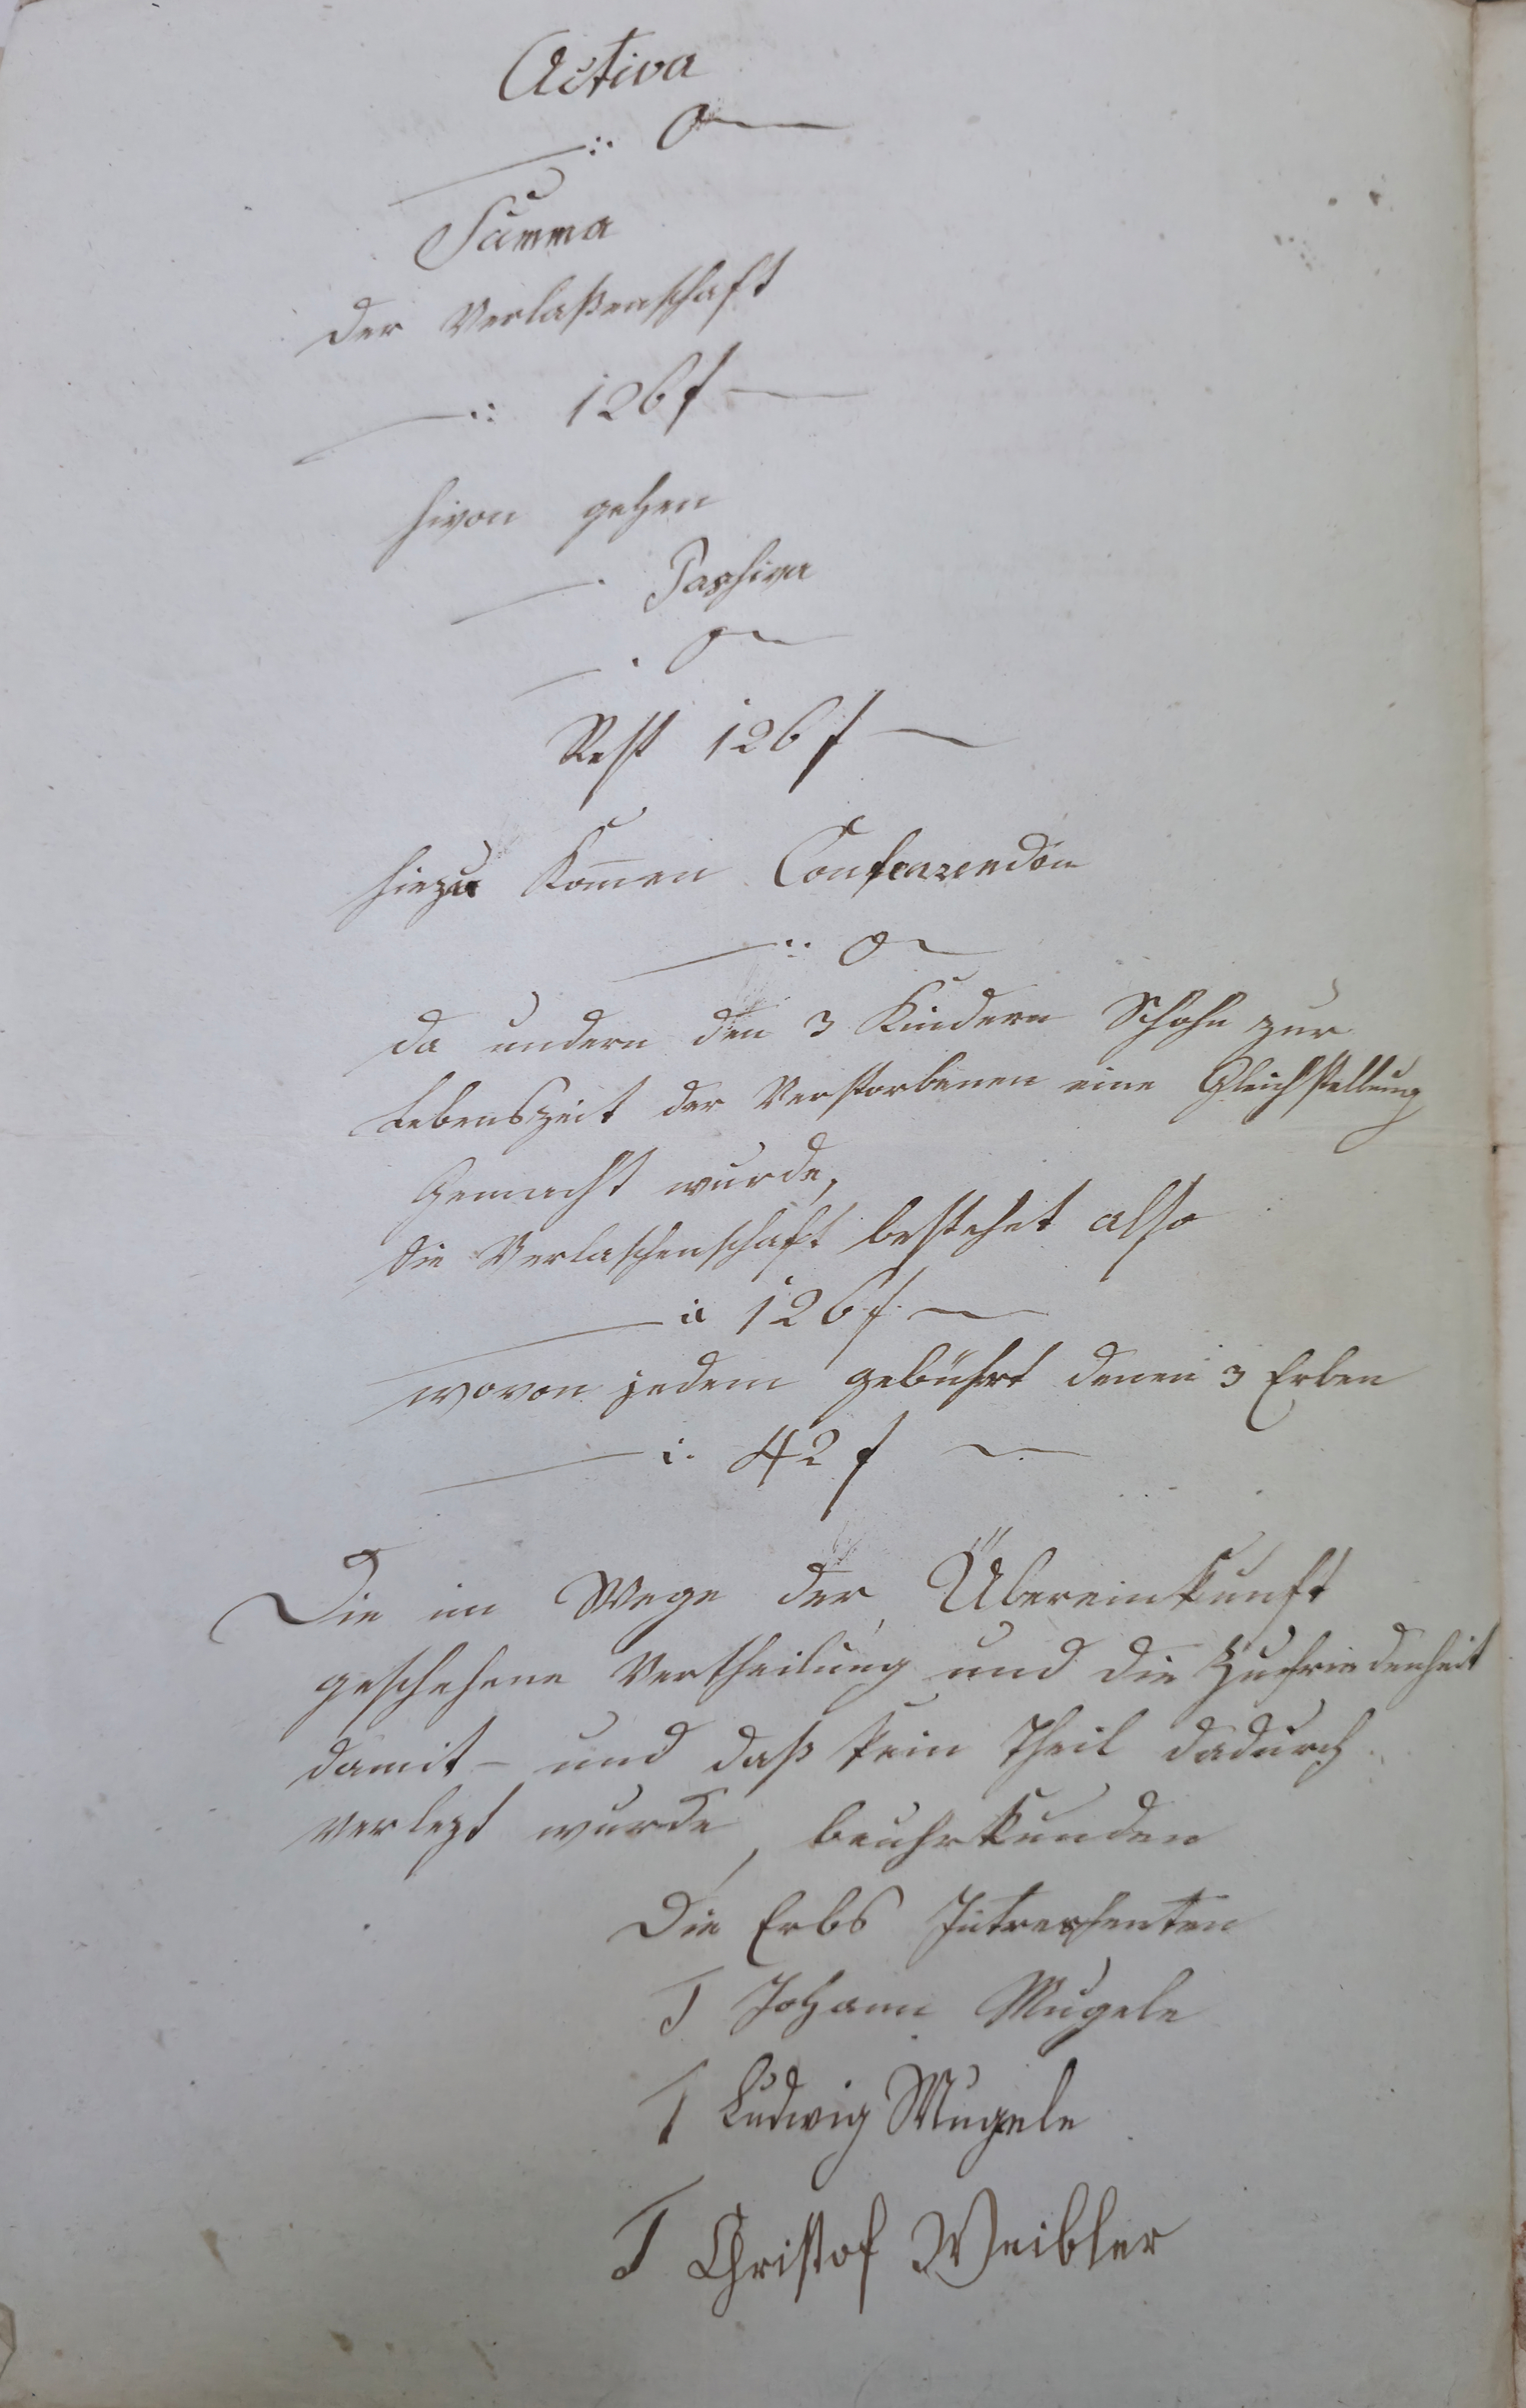 Activa
—:. 0 —
Summa
der Verlaßenschaft
—.: 126 f —
hivon gehen
—. Passiva
—. 0 —
Rest 126 f —
hiezu kom̄en Conferendon
—.: 0 —
da undern den 3 Kindern Schohn zur
Lebenszeit der Verstorbenen eine Gleichstellung
Gemacht wurde,
die Verlassenschaft bestehet also
—: 126 f. —
wovon jedem gebührt denen 3 Erben
—:. 42 f —
Die im Wege der Übereinkunft
geschehene Vertheilung und die Zufriedenheit
damit – und daß kein Theil dadurch
verlezt wurde, beuhrkunden
Die Erbs Intressenten
T Johann Mugele
T Ludwig Mugele
T Christof Weibler